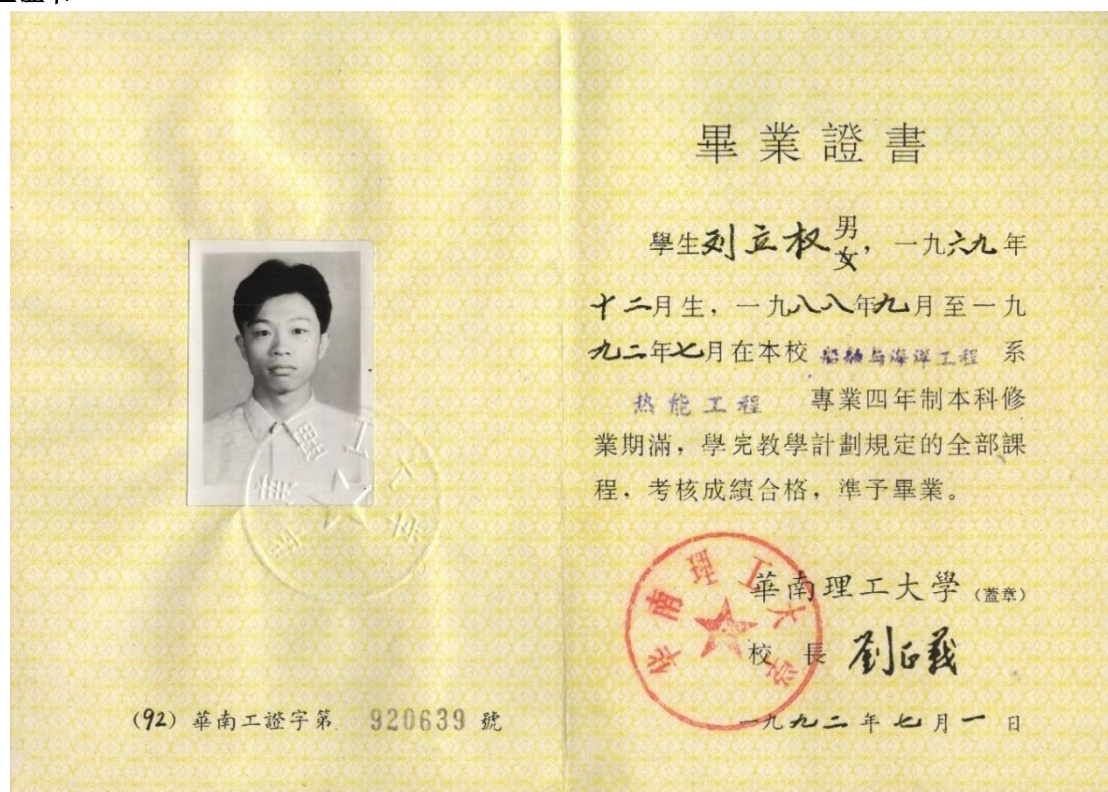 畢業證書
學生刘立权男女，一九六九年
十二月生，一九八八年九月至一九
九二年七月在本校船舶与海洋工程系
热能工程專業四年制本科修
業期滿，學完教學計劃規定的全部課
程，考核成績合格，準予畢業。
華南理工大學（蓋章）
校長 劉正義
一九九二年七月一日
华南理工大学
(92) 華南工證字第 920639 號